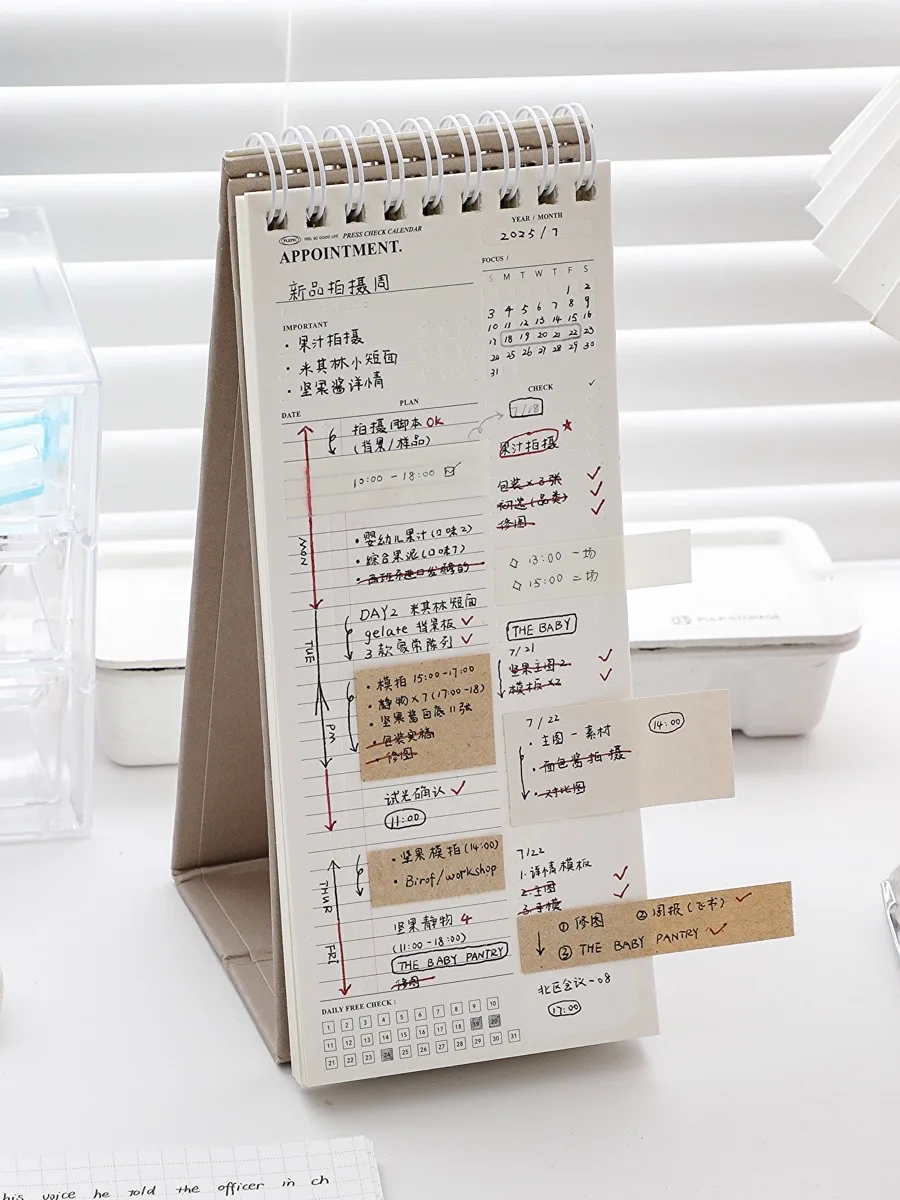 PRESS CHECK CALENDAR
FEEL SO GOOD LIFE
APPOINTMENT.
YEAR / MONTH
2025 / 7
新品拍摄周
FOCUS /
S M T W T F S
1 2
3 4 5 6 7 8 9
10 11 12 13 14 15 16
17 18 19 20 21 22 23
24 25 26 27 28 29 30
31
IMPORTANT
· 果汁拍摄
· 米其林小短面
· 坚果酱详情
DATE
PLAN
MON
TUE
PM
THUR
FRI
拍摄脚本 OK
(背果/样品)
10:00 - 18:00
· 婴幼儿果汁(口味2)
· 综合果泥(口味7)
DAY2 米其林短面
gelate 背果板 ✓
3款家常陈列 ✓
· 模拍 15:00-17:00
· 静物×7(17:00-18)
· 坚果酱白底11张
· 包装实摘
- 修图
试光确认 ✓
11:00
· 坚果模拍(14:00)
· Birof/workshop
坚果静物 4
(11:00-18:00)
THE BABY PANTRY
修图
CHECK
✓
7/18
果汁拍摄 ★
包装×3张 ✓
初选(品类) ✓
修图 ✓
◇ 13:00 一场
◇ 15:00 二场
THE BABY
7/21
坚果主图2 ✓
模板×2 ✓
7/22
14:00
· 主图一素材
· 面包酱拍摄
· 对比图
7/22
1. 详情模板
2. 主图 ✓
3. 手模 ✓
① 修图 ② 周报(飞书) ✓
③ THE BABY PANTRY ✓
北区会议-08
17:00
DAILY FREE CHECK :
1 2 3 4 5 6 7 8 9 10
11 12 13 14 15 16 17 18 19 20
21 22 23 24 25 26 27 28 29 30 31
PULP STORAGE
his voice he told the officer in ch